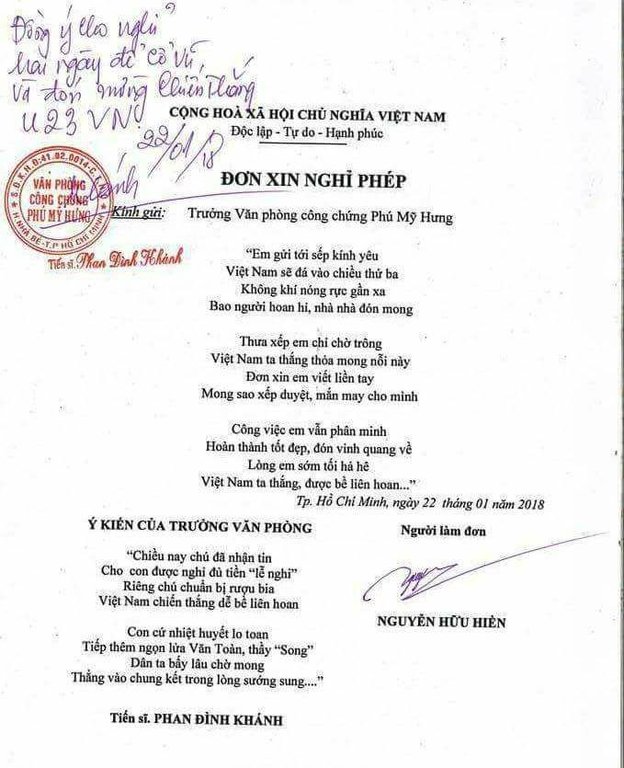 Đồng ý cho nghỉ
hai ngày để cổ vũ
và đón mừng chiến thắng
U23 VN.
22/01/18
CỘNG HOÀ XÃ HỘI CHỦ NGHĨA VIỆT NAM
Độc lập - Tự do - Hạnh phúc
ĐƠN XIN NGHỈ PHÉP
S.Đ.K.H.Đ:41.02.0014-C.C
VĂN PHÒNG
CÔNG CHỨNG
PHÚ MỸ HƯNG
H.NHÀ BÈ-T.P HỒ CHÍ MINH
Tiến sĩ. Phan Đình Khánh
Kính gửi: Trưởng Văn phòng công chứng Phú Mỹ Hưng
“Em gửi tới sếp kính yêu
Việt Nam sẽ đá vào chiều thứ ba
Không khí nóng rực gần xa
Bao người hoan hỉ, nhà nhà đón mong
Thưa xếp em chỉ chờ trông
Việt Nam ta thắng thỏa mong nỗi này
Đơn xin em viết liền tay
Mong sao xếp duyệt, mắn may cho mình
Công việc em vẫn phân minh
Hoàn thành tốt đẹp, đón vinh quang về
Lòng em sớm tối hả hê
Việt Nam ta thắng, được bề liên hoan...”
Tp. Hồ Chí Minh, ngày 22 tháng 01 năm 2018
Ý KIẾN CỦA TRƯỞNG VĂN PHÒNG
“Chiều nay chú đã nhận tin
Cho con được nghỉ đủ tiền “lễ nghi”
Riêng chú chuẩn bị rượu bia
Việt Nam chiến thắng dễ bề liên hoan
Con cứ nhiệt huyết lo toan
Tiếp thêm ngọn lửa Văn Toàn, thầy “Song”
Dân ta bấy lâu chờ mong
Thắng vào chung kết trong lòng sướng sung....”
Tiến sĩ. PHAN ĐÌNH KHÁNH
Người làm đơn
NGUYỄN HỮU HIỀN